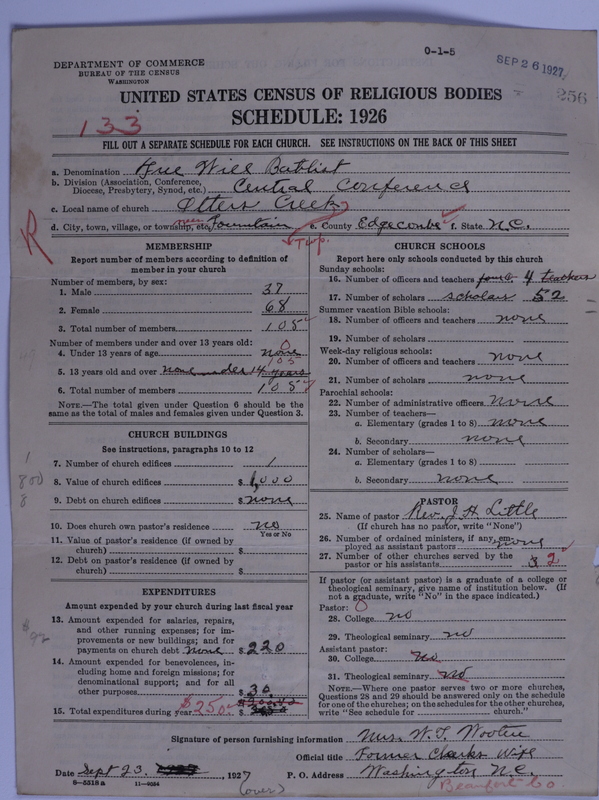 0-1-5
SEP 26 1927
256
DEPARTMENT OF COMMERCE
BUREAU OF THE CENSUS
WASHINGTON
UNITED STATES CENSUS OF RELIGIOUS BODIES
SCHEDULE: 1926
133
FILL OUT A SEPARATE SCHEDULE FOR EACH CHURCH. SEE INSTRUCTIONS ON THE BACK OF THIS SHEET
a. Denomination Free Will Babtist
b. Division (Association, Conference, Diocese, Presbytery, Synod, etc.) Central Conference
c. Local name of church Otters Creek
d. City, town, village, or township, etc. Fountain e. County Edgecombe f. State N.C.
R
Twp.
MEMBERSHIP
Report number of members according to definition of
member in your church
Number of members, by sex:
1. Male 37
2. Female 68
3. Total number of members 105
Number of members under and over 13 years old:
4. Under 13 years of age none 0
105
5. 13 years old and over none under 14 years
6. Total number of members 105
NOTE.—The total given under Question 6 should be
the same as the total of males and females given under Question 3.
CHURCH BUILDINGS
See instructions, paragraphs 10 to 12
7. Number of church edifices 1
8. Value of church edifices $ 1,000
9. Debt on church edifices $ none
10. Does church own pastor's residence no
Yes or No
11. Value of pastor's residence (if owned by
church) $
12. Debt on pastor's residence (if owned by
church) $
1
800
8
EXPENDITURES
Amount expended by your church during last fiscal year
13. Amount expended for salaries, repairs,
and other running expenses; for im-
provements or new buildings; and for
payments on church debt None $ 220
14. Amount expended for benevolences, in-
cluding home and foreign missions; for
denominational support; and for all
other purposes $ 30
15. Total expenditures during year $250 $
CHURCH SCHOOLS
Report here only schools conducted by this church
Sunday schools:
16. Number of officers and teachers four 4 teachers
17. Number of scholars scholars 52
Summer vacation Bible schools:
18. Number of officers and teachers none
19. Number of scholars
Week-day religious schools:
20. Number of officers and teachers none
21. Number of scholars none
Parochial schools:
22. Number of administrative officers none
23. Number of teachers—
a. Elementary (grades 1 to 8) none
b. Secondary none
24. Number of scholars—
a. Elementary (grades 1 to 8)
b. Secondary none
PASTOR
25. Name of pastor Rev. J. H. Little
(If church has no pastor, write "None")
26. Number of ordained ministers, if any, em-
ployed as assistant pastors none
27. Number of other churches served by the
pastor or his assistants 3 2
If pastor (or assistant pastor) is a graduate of a college or
theological seminary, give name of institution below. (If
not a graduate, write "No" in the space indicated.)
Pastor:
28. College no
29. Theological seminary no
Assistant pastor:
30. College no
31. Theological seminary no
NOTE.—Where one pastor serves two or more churches,
Questions 28 and 29 should be answered only on the schedule
for one of the churches; on the schedules for the other churches,
write "See schedule for church."
Signature of person furnishing information Mrs. W. T. Wooten
Official title Former Clerks Wife
Date Sept 23, 1927 P. O. Address Washington N.C.
8—5518a 11—9034
(over)
Beaufort Co.